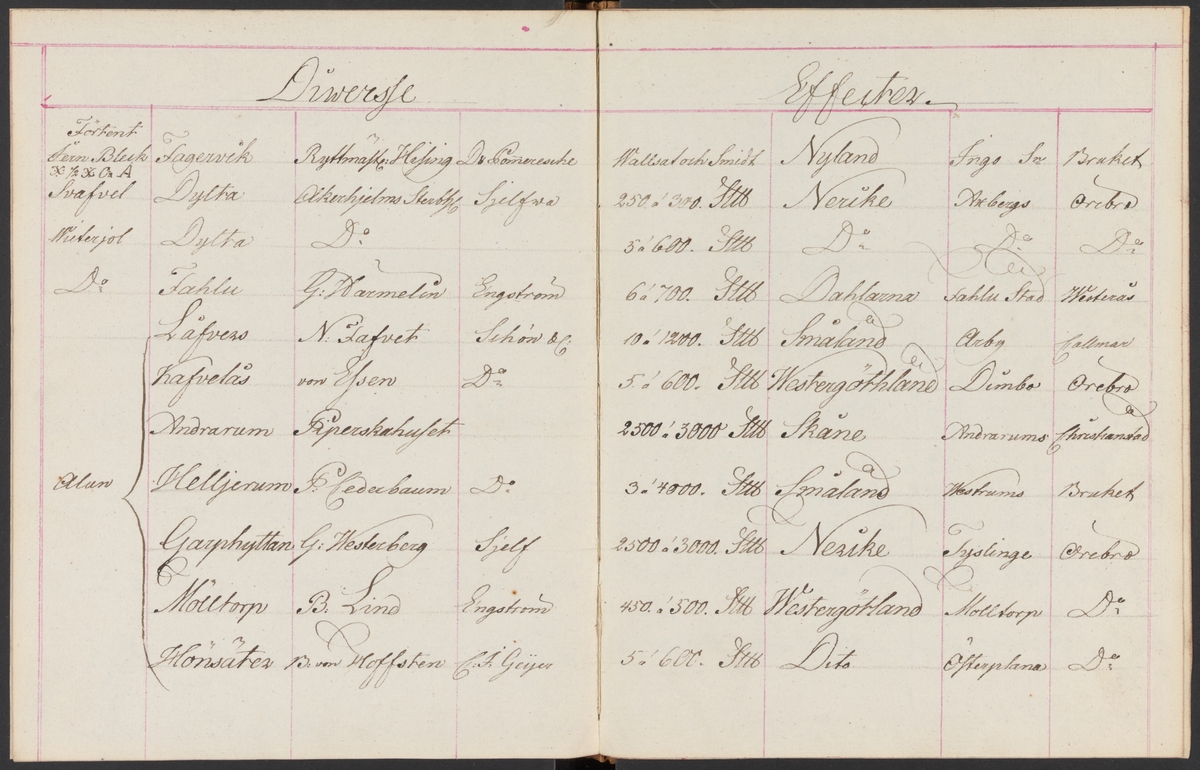 Diwersse Effecter.
Förtent
Jern Bleck Fagervik Ryttmäst: Hising De Pameresche Wallsatoch Smidt Nyland Ingo Sn Bruket
Svafvel Dylta Åkerhjelms Sterbh: Sjelfwa 250 à 300. Sttb Nerike Axbergs Örebro
Wicterjol Dylta Do 5 à 600. Sttb Do Do Do
Do Fahlu G: Harmelin Engström 6 à 700. Sttb Dahlarna Fahlu Stad Westerås
Låfvers N: Tafvet Schön & C. 10 à 1200. Sttb Småland Arby Callmar
Kafvelås von Essen Do 5 à 600. Sttb Westergöthland Dimbo Örebro
Andrarum Piperskahuset 2500 à 3000 Sttb Skåne Andrarums Christianstad
Alun Helljerum P: Cederbaum Do 3 à 4000. Sttb Småland Westrums Bruket
Garphyttan G: Westerberg Sjelf 2500 à 3000. Sttb Nerike Tyslinge Örebro
Mölltorp B. Lind Engström 450. à 500. Sttb Westergöthland Mölltorp Do
Hönsäter B: von Hoffsten C. F. Geijer 5 à 600. Sttb Dito Österplana Do